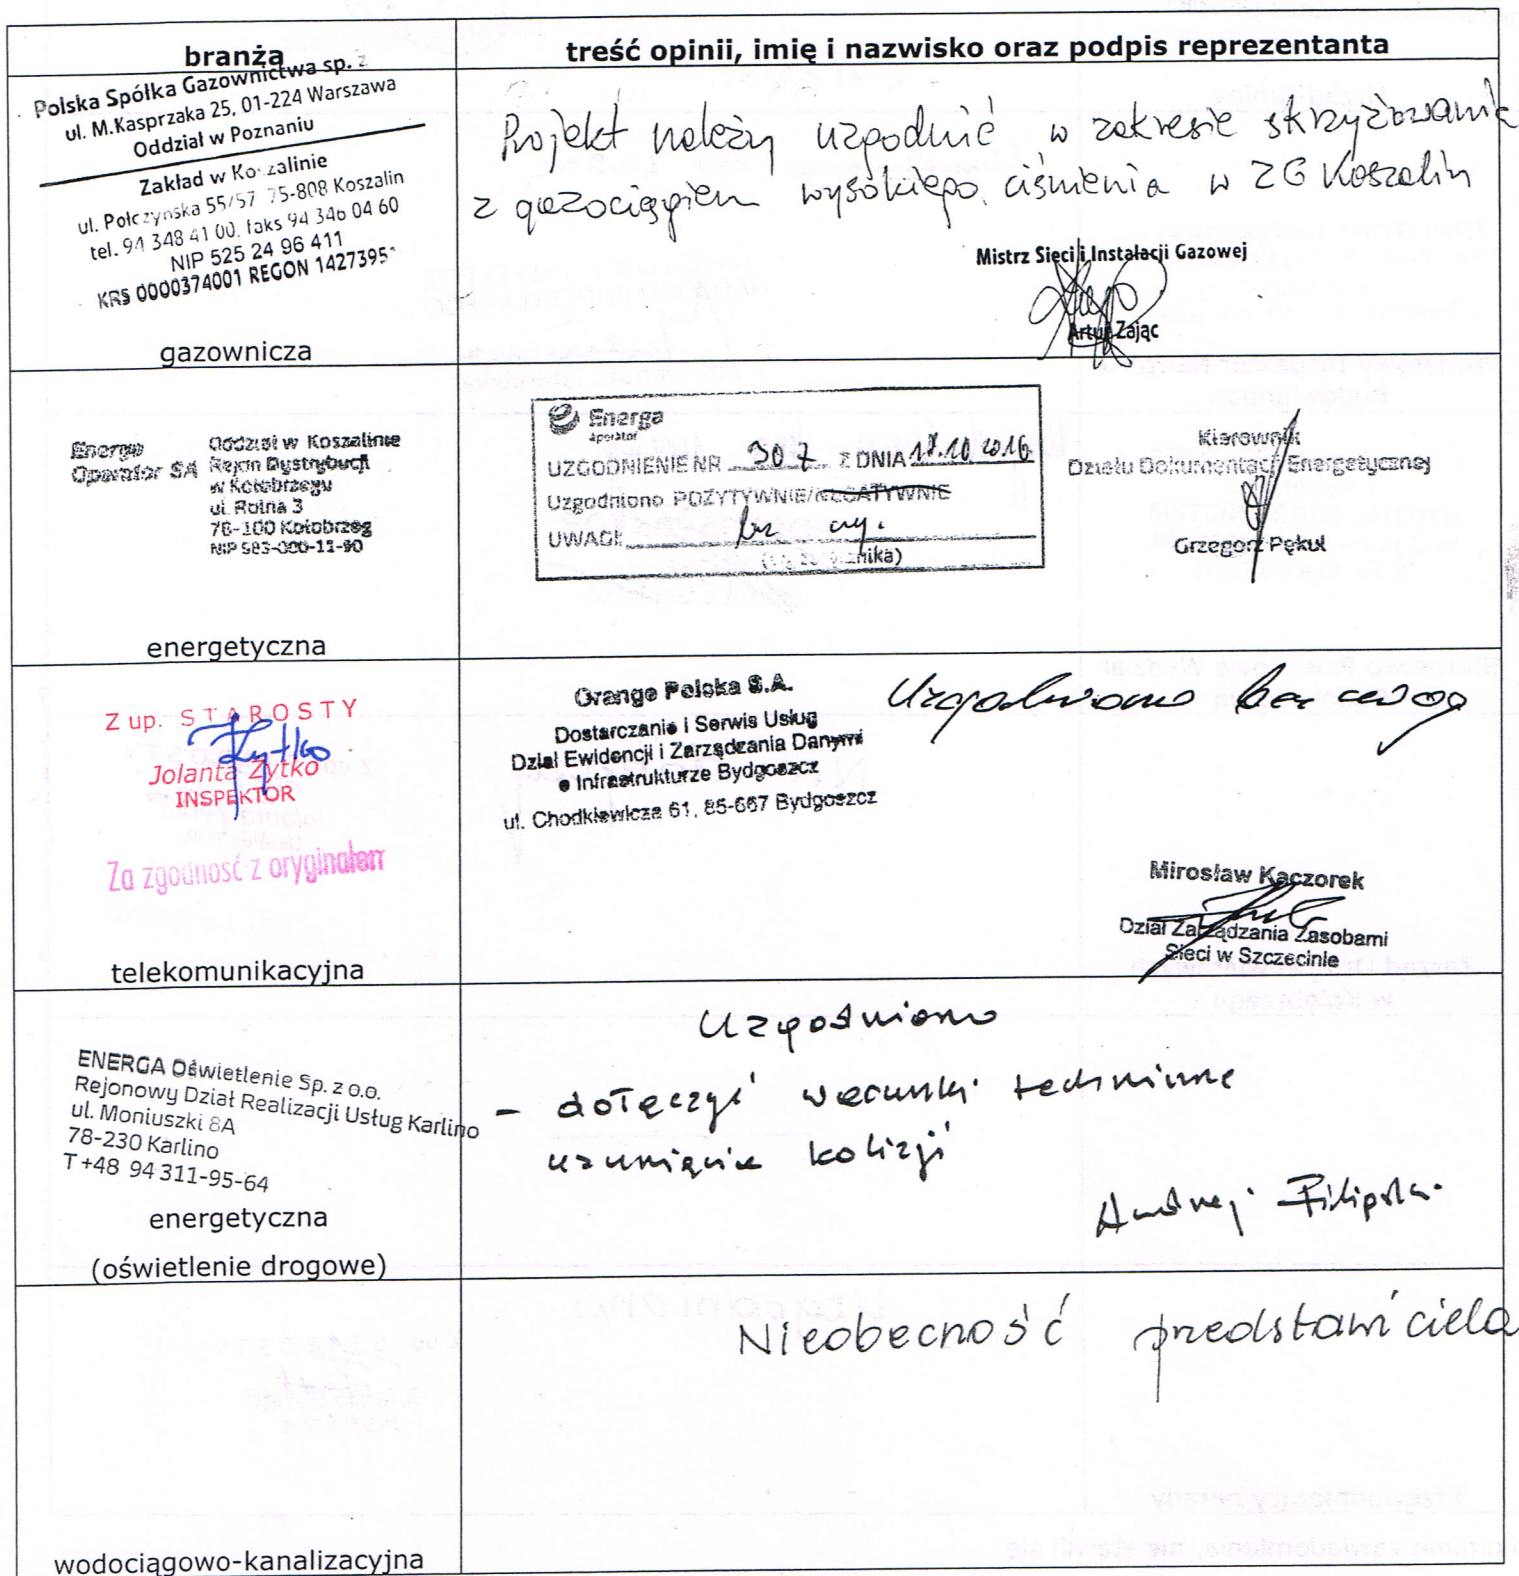 branża
treść opinii, imię i nazwisko oraz podpis reprezentanta
Polska Spółka Gazownictwa sp. z
ul. M.Kasprzaka 25, 01-224 Warszawa
Oddział w Poznaniu
Zakład w Koszalinie
ul. Połczyńska 55/57 75-808 Koszalin
tel. 94 348 41 00, faks 94 346 04 60
NIP 525 24 96 411
KRS 0000374001 REGON 14273951
gazownicza
Projekt należy uzgodnić w zakresie skrzyżowania
z gazociągiem wysokiego ciśnienia w ZG Koszalin
Mistrz Sieci i Instalacji Gazowej
Artur Zając
Energa Oddział w Koszalinie
Operator SA Rejon Dystrybucji
w Kołobrzegu
ul. Rolna 3
78-100 Kołobrzeg
NIP 583-000-11-90
energetyczna
Energa
operator
UZGODNIENIE NR 307 Z DNIA 17.10.2016
Uzgodniono POZYTYWNIE/NEGATYWNIE
UWAGI: bez uwg.
Kierownik
Działu Dokumentacji Energetycznej
Grzegorz Pękul
Z up. STAROSTY
Jolanta Żytko
INSPEKTOR
Za zgodność z oryginałem
telekomunikacyjna
Orange Polska S.A.
Dostarczanie i Serwis Usług
Dział Ewidencji i Zarządzania Danymi
o Infrastrukturze Bydgoszcz
ul. Chodkiewicza 61, 85-667 Bydgoszcz
Uzgodniono bez uwag
Mirosław Kaczorek
Dział Zarządzania Zasobami
Sieci w Szczecinie
ENERGA Oświetlenie Sp. z o.o.
Rejonowy Dział Realizacji Usług Karlino
ul. Moniuszki 8A
78-230 Karlino
T +48 94 311-95-64
energetyczna
(oświetlenie drogowe)
Uzgodniono
- dołączyć warunki techniczne
usunięcia kolizji
Andrzej Filipski
wodociągowo-kanalizacyjna
Nieobecność przedstawiciela